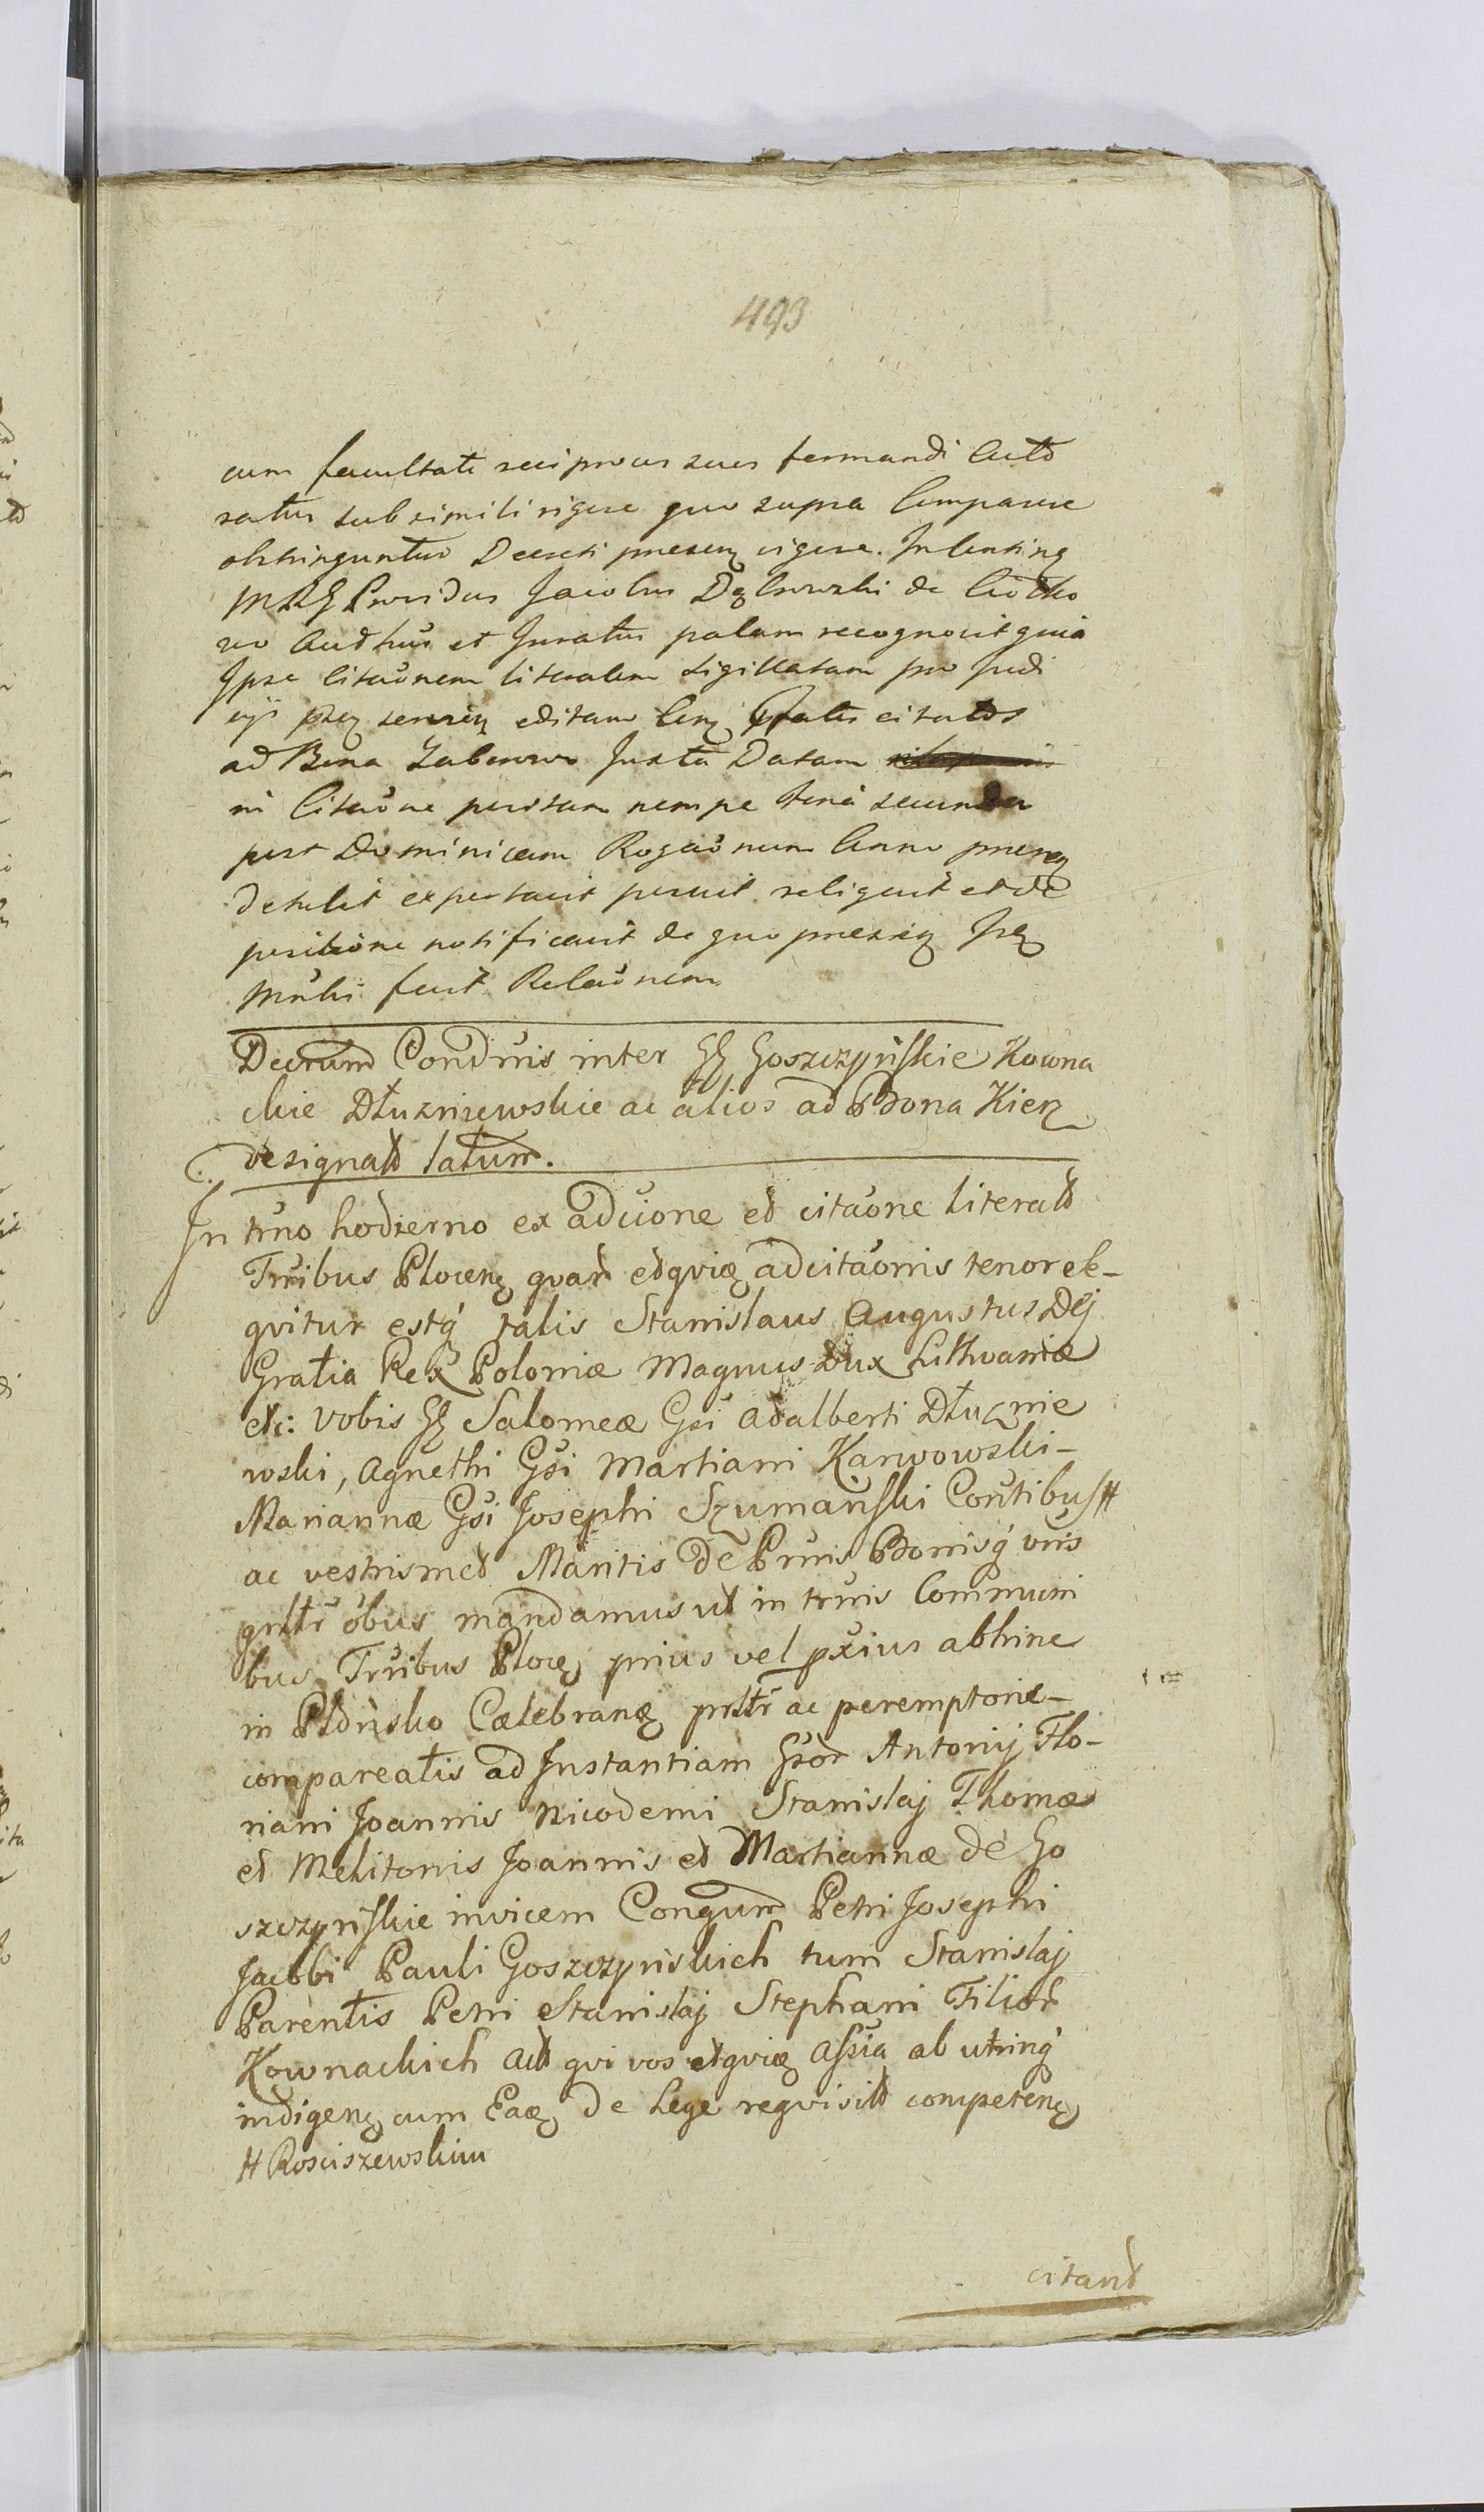 493
cum facultate reciprocas suas formandi Acto
ratus sub simili rigore quo supra Comparere
obstringuntur Decreti presen vigore. In Continen
MRG Providus Jacobus Dąbrowski de Ciołko
wo Authus et Juratus palam recognovit quia
Ipse citaõnem literalem sigillatam pro Judi
cijs pñ editam citatos
ad Bona Zaborowo Juxta Datam
in Citaõne positam nempe feria secunda
post Dominicam Rogaõnum Anno presen
detulit exportavit posuit reliquit et de
positione notificavit de quo presen
fecit Relaõnem
Decrum Condnis inter GG Goszczynskie Kowna
ckie Dłuzniewskie ac alios ad Bona Kien
designatt latum.
In trno hodierno ex adcione et citaõne literatt
Trnibus Plocen quar etquię adcitaõnis tenor se-
qvitur estq́ talis Stanislaus Augustus Dej
Gratia Rex Poloniæ Magnus Dux Lithvaniæ
etc: Vobis GG Salomeæ Gsi Adalberti Dłuznie
wski, Agnethi Gsi Martiani Karwowski-
Mariannæ Gsi Josephi Szumanski Contibus #
ac vestrismet Maritis De Prnis Bonisq́ vris
gnltr õbus mandamus ut in trnis Communi
bus Trnibus Ploc prius vel pxius abhinc
in Płonsko Cælebran prltr ac peremptorie-
compareatis ad Instantiam Gsor Antonij Flo-
riani Joannis Nicodemi Stanislaj Thomæ
et Melitonis Joannis et Martiannæ de Go
szczynskie invicem Congum Petri Josephi
Jacobi Pauli Goszczynskich tum Stanislaj
Parentis Petri Stanislaj Stephani Filior
Kownackich Actt qvi vos etquię Assia ab utrinq́
indigen cum Eaę de Lege reqvisitt competen
# Rosciszewskim
citand